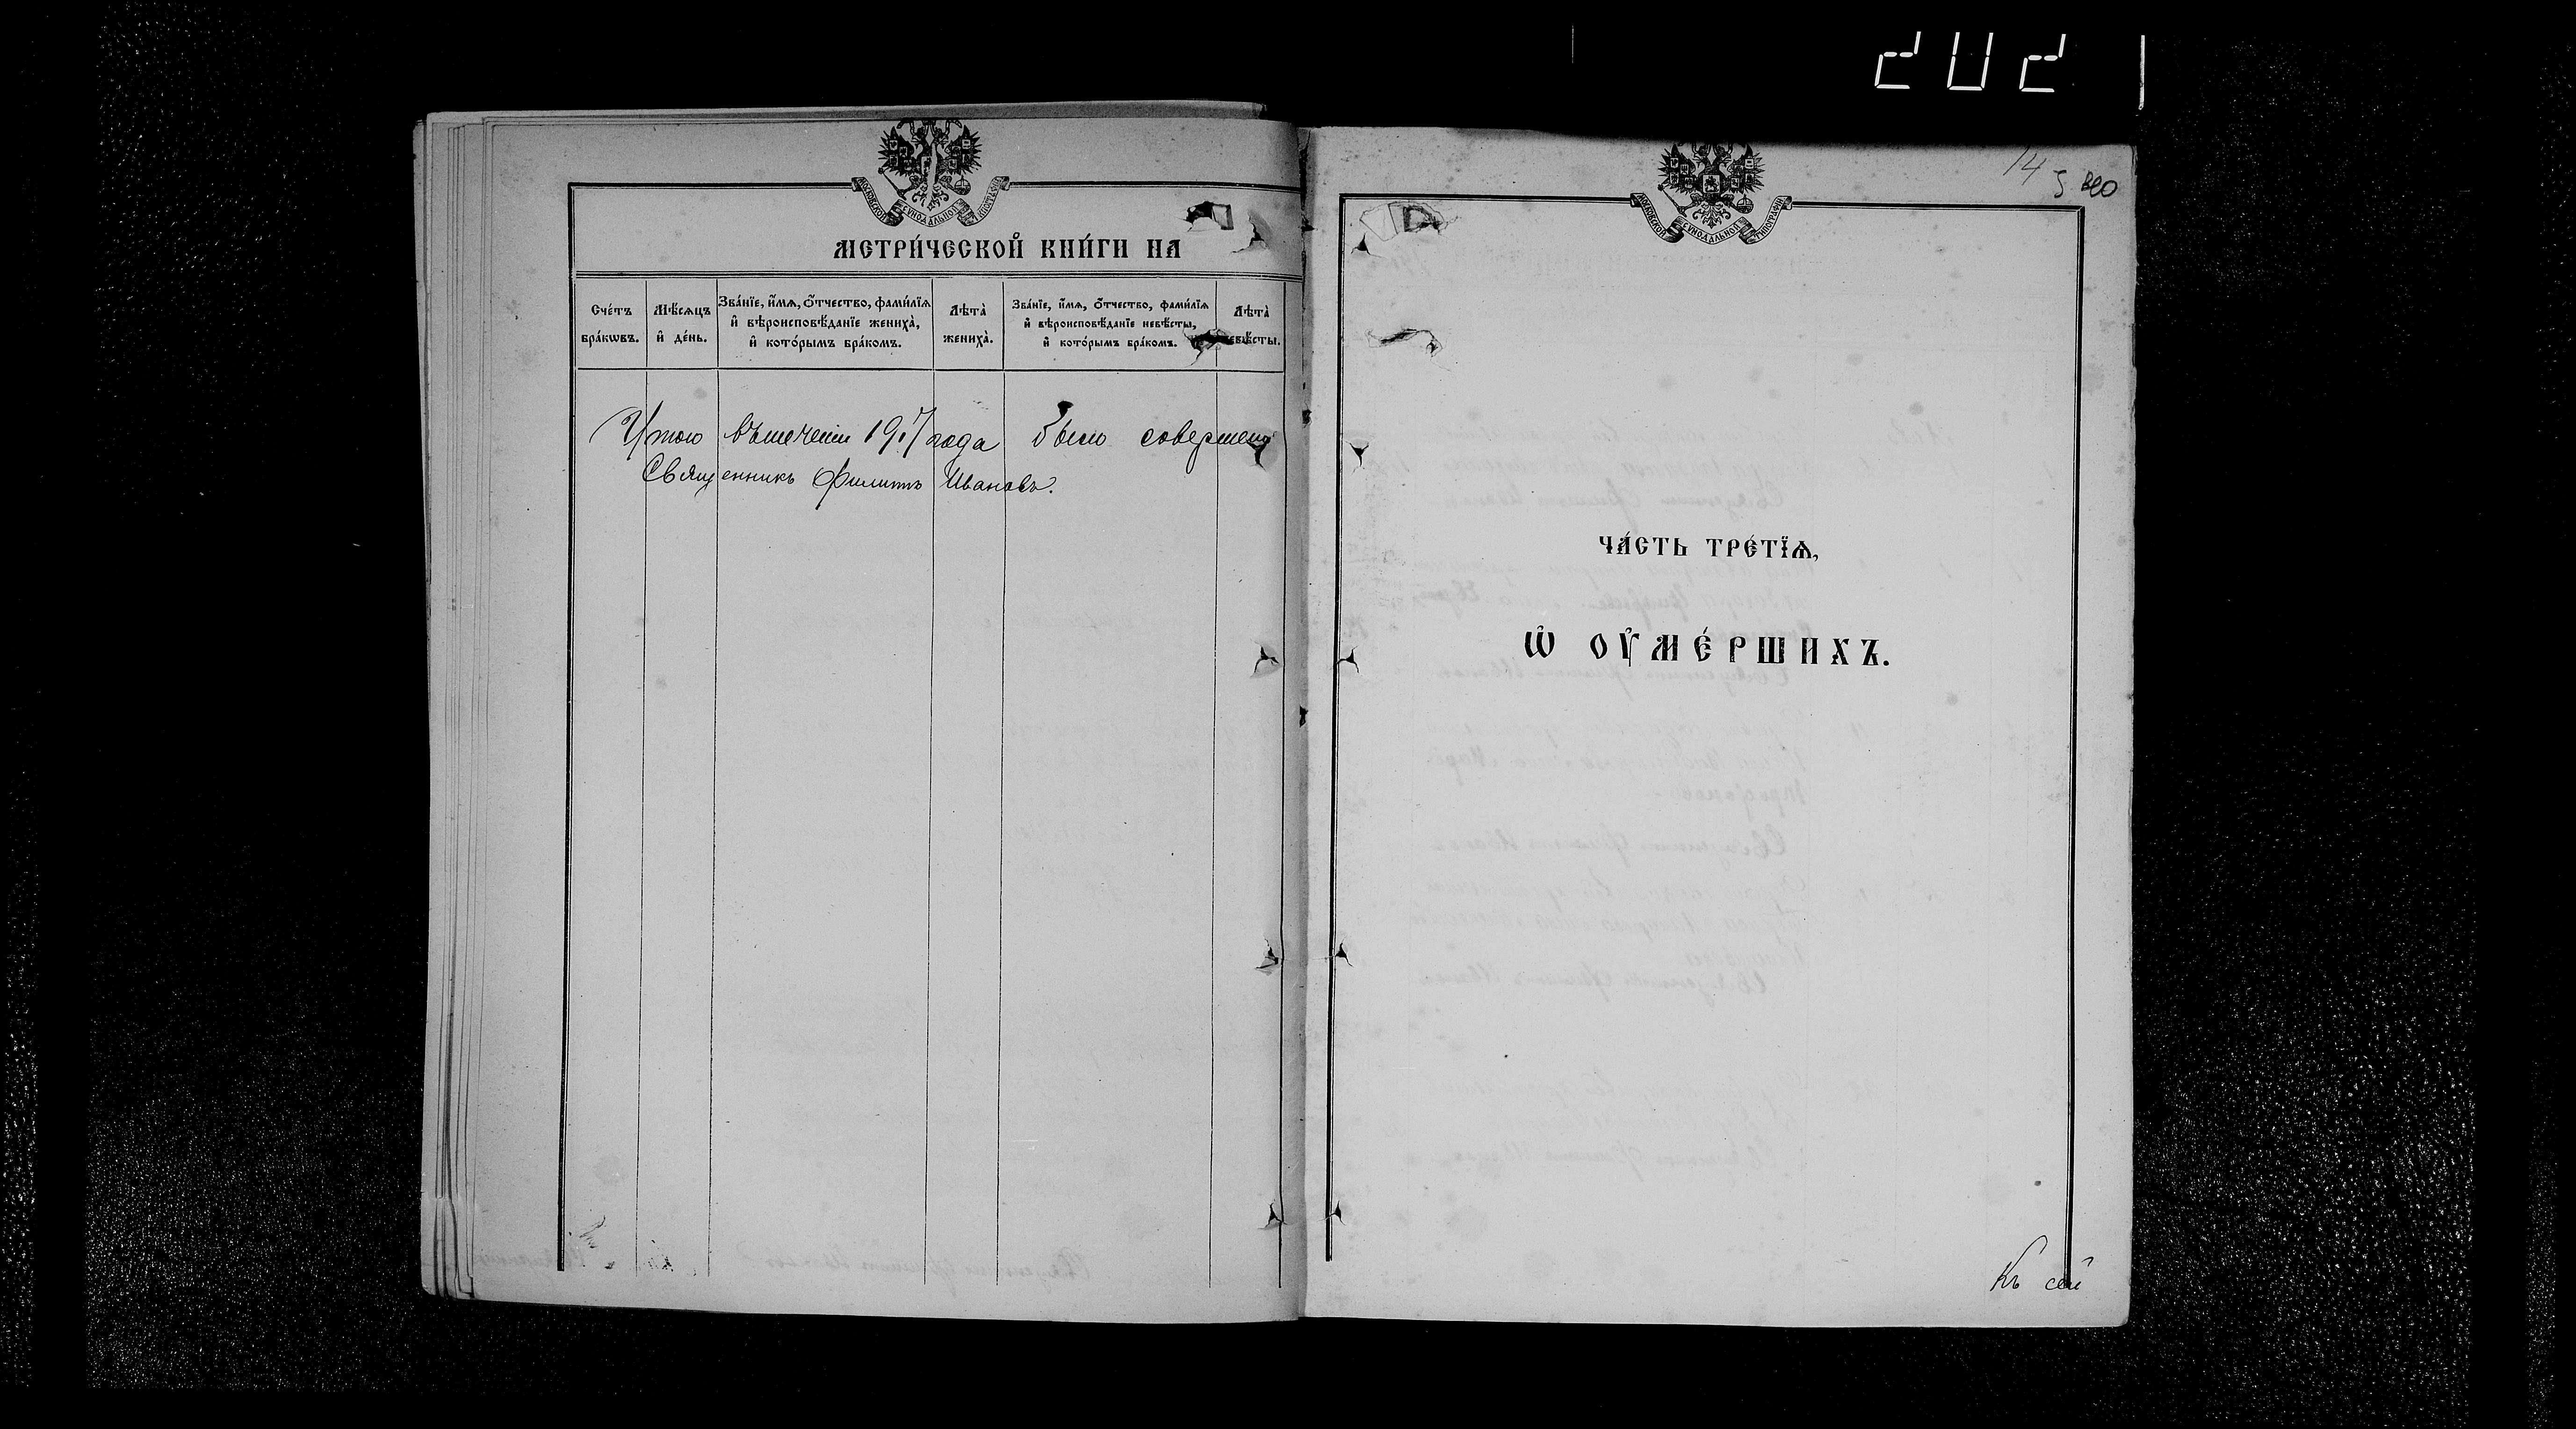 202
МОСКОВСКОЙ СѴНОДАЛЬНОЙ ТИПОГРАФІИ
МЕТРИ́ЧЕСКОЙ КНИ́ГИ НА
Сче́тъ бра́кѡвъ.
Мѣ́сѧцъ и҆ де́нь.
Зва́нїе, и҆́мѧ, ѻ҆́тчество, фами́лїѧ и҆ вѣроисповѣ́данїе жениха̀, и҆ кото́рымъ бра́комъ.
Лѣта̀ жениха̀.
Зва́нїе, и҆́мѧ, ѻ҆́тчество, фами́лїѧ и҆ вѣроисповѣ́данїе невѣ́сты, и҆ кото́рымъ бра́комъ.
Лѣта̀ невѣ́сты.
Итого въ теченіи 1917 года было совершено
Священникъ Филиппъ Ивановъ.
14
МОСКОВСКОЙ СѴНОДАЛЬНОЙ ТИПОГРАФІИ
ЧА́СТЬ ТРЕ́ТЇѦ,
Ѡ҆ ОУ҆МЕ́РШИХЪ.
Къ сей